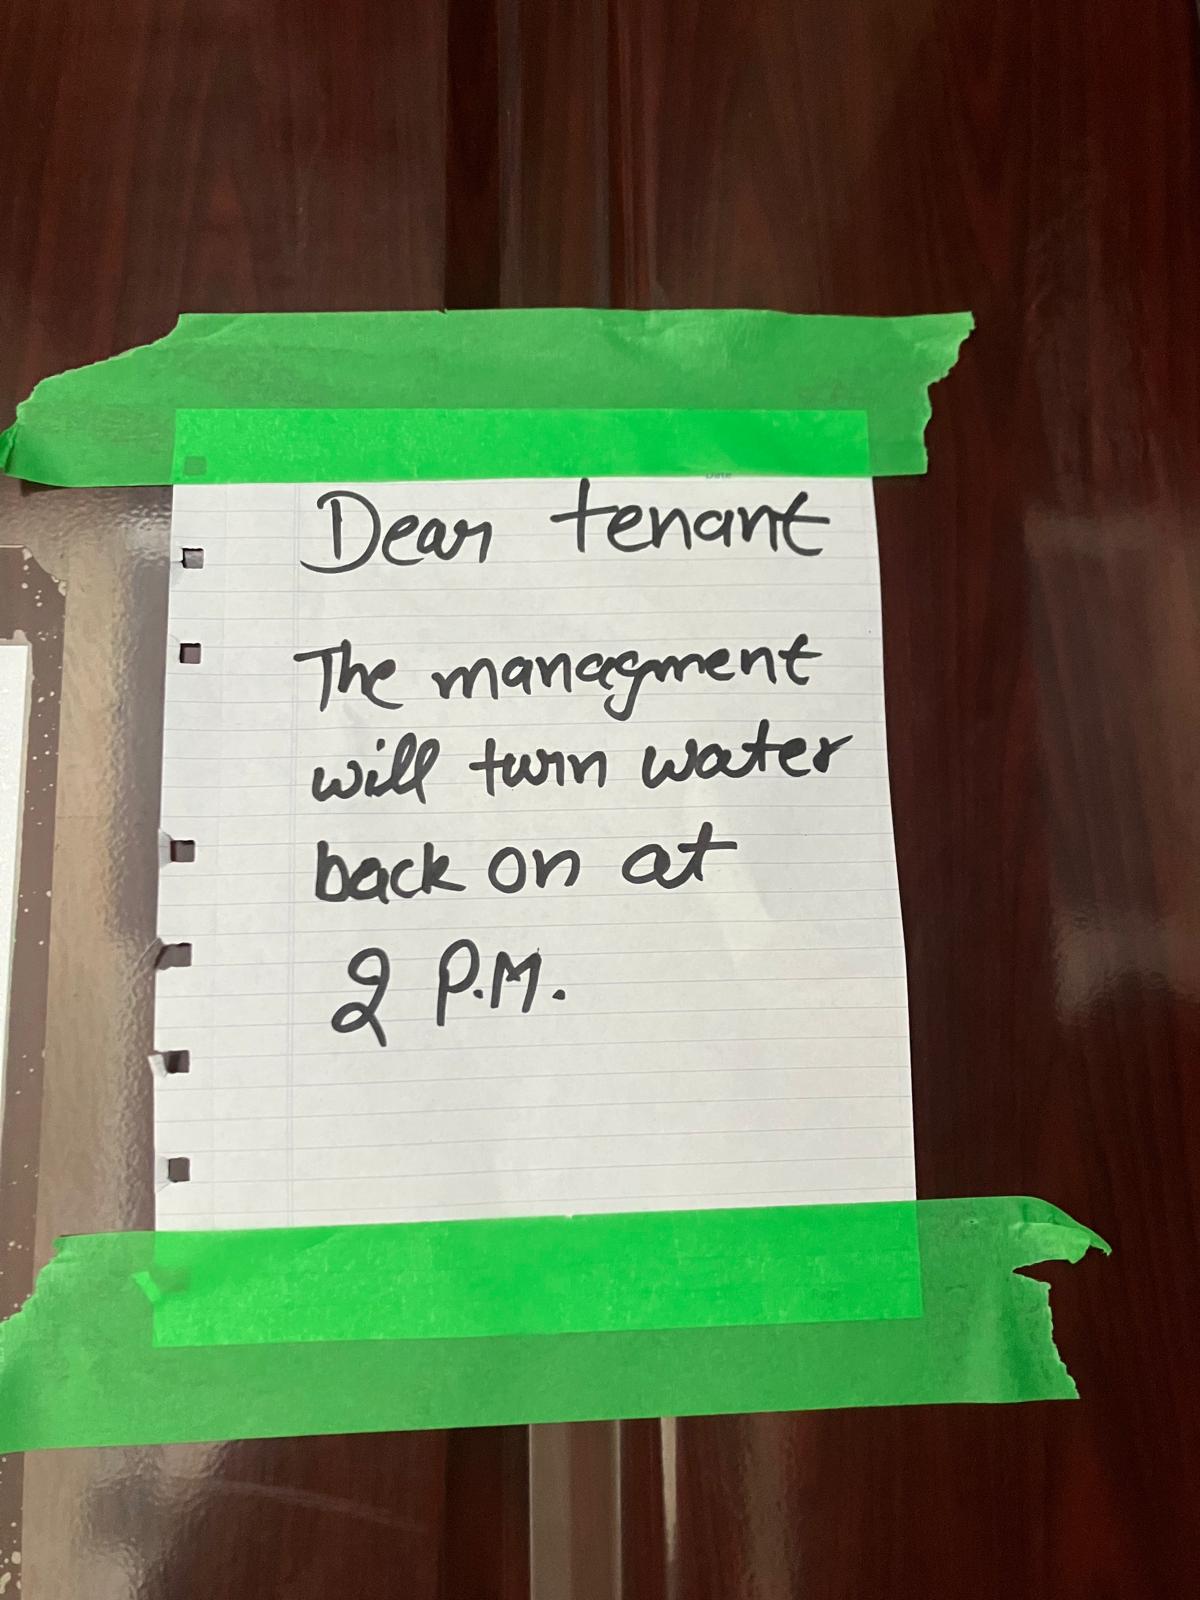 Dear tenant
The managment
will turn water
back on at
2 P.M.